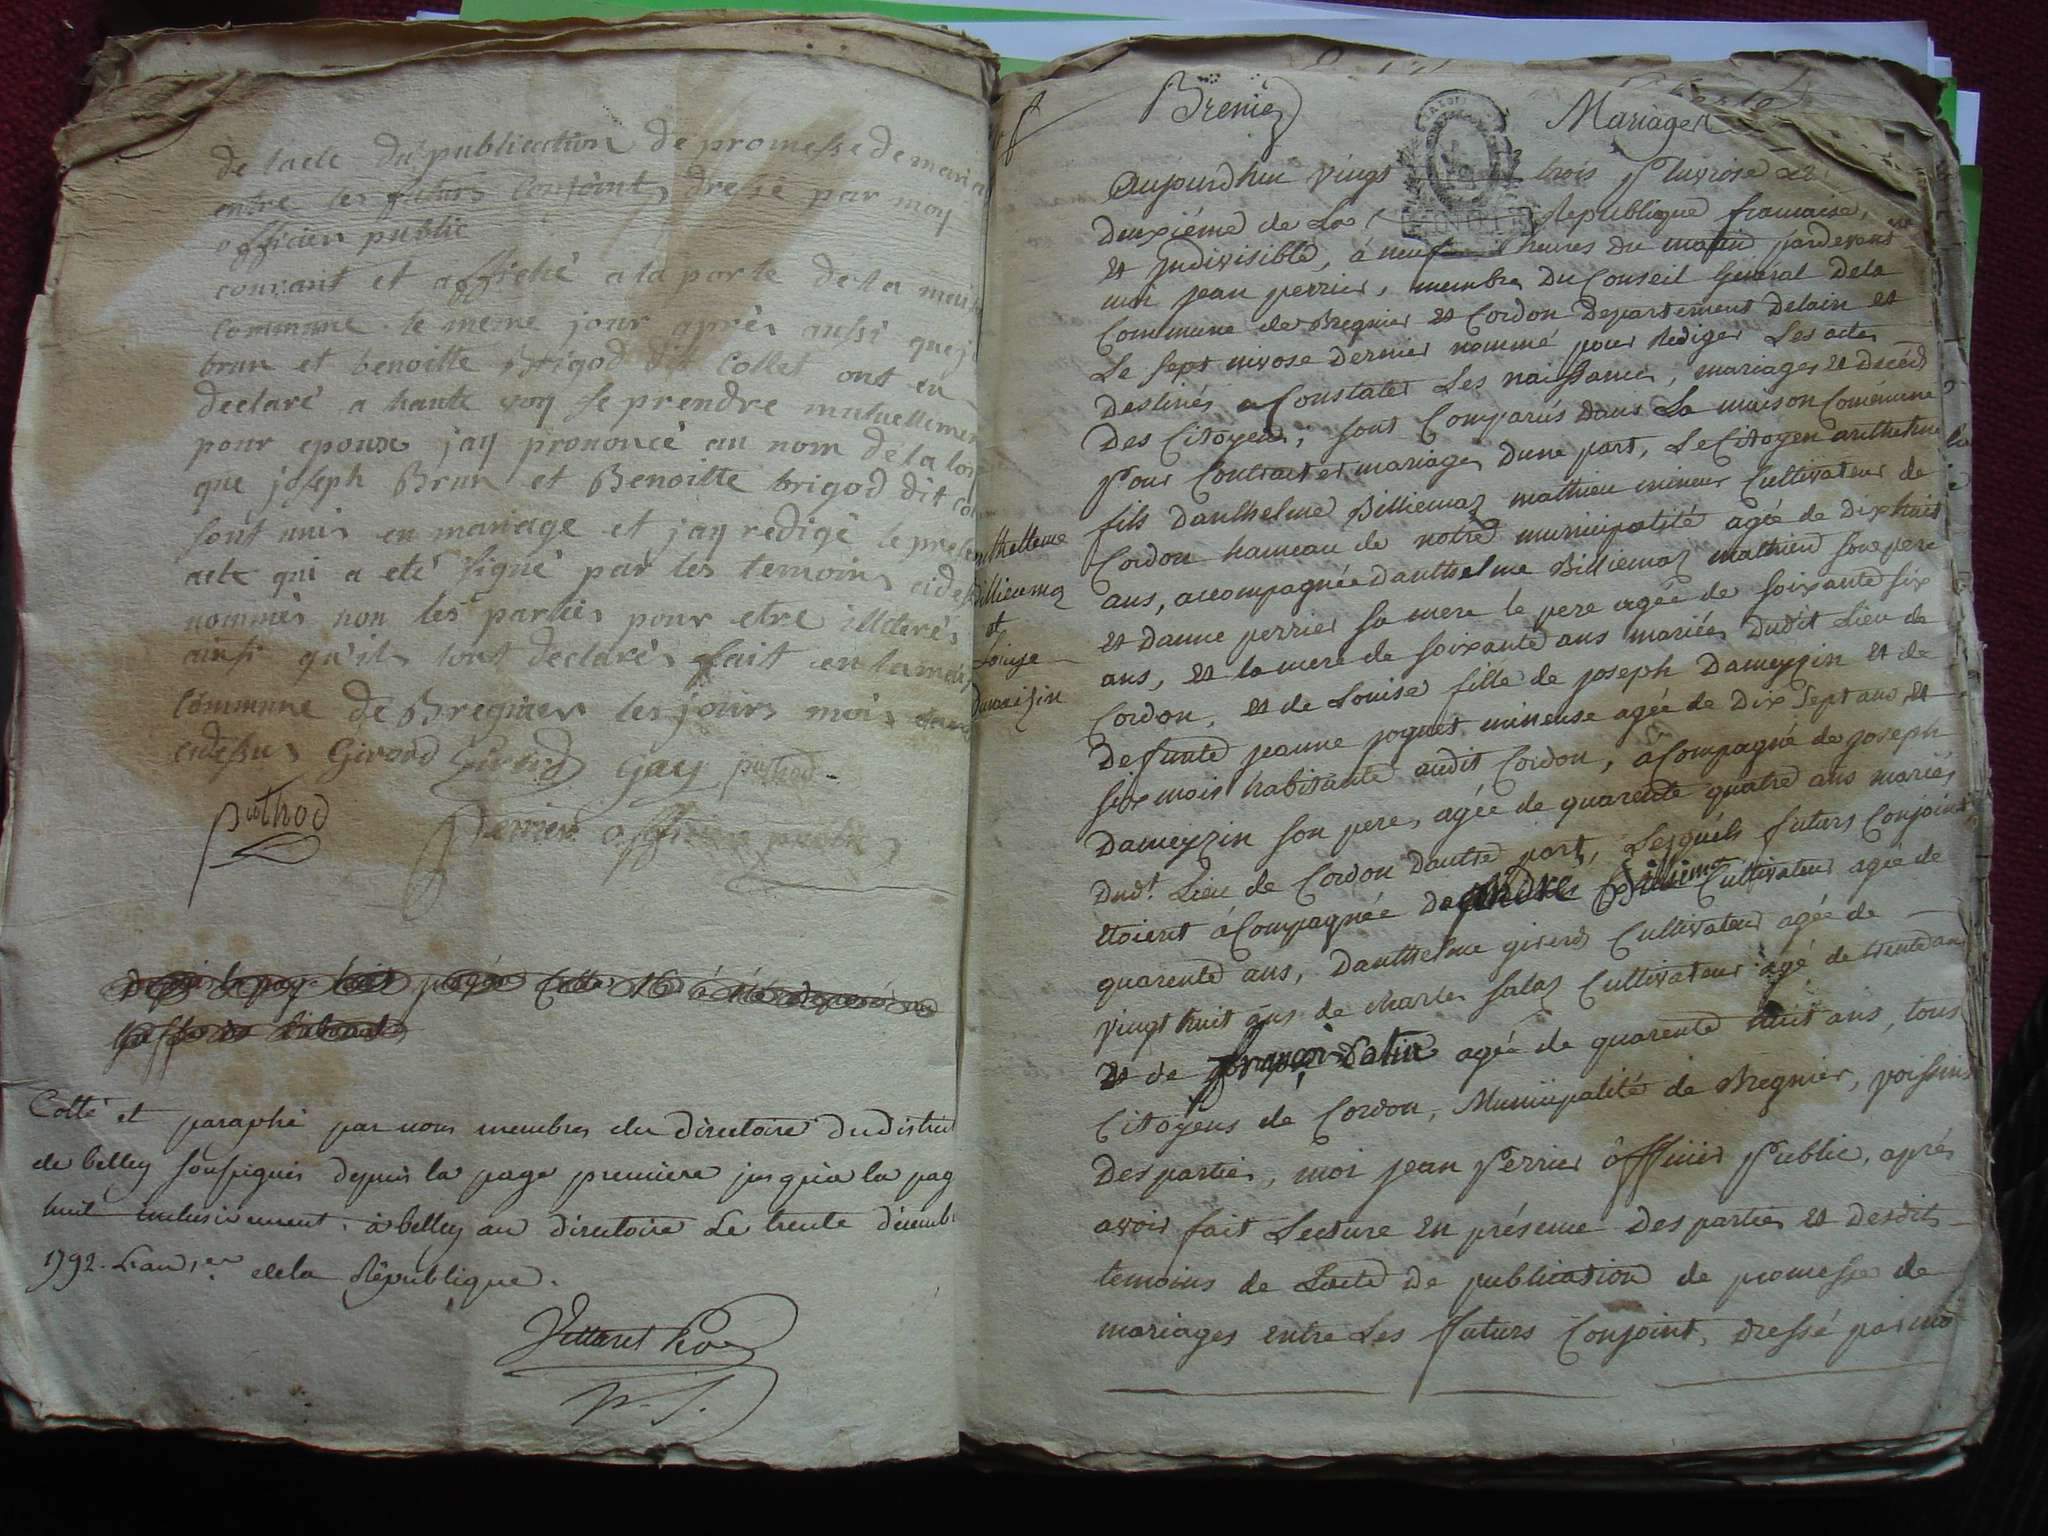 de lacte du publication de promesse de maria
entre les futurs conjoints dressé par moy
officier public
courant et affiché a la porte de la mais
commune le meme jour après aussi que j
brun et benoitte Brigod dit Collet ont en
declaré a haute voy se prendre mutuellemen
pour epoux jay prononcé au nom de la loy
que joseph Brun et Benoitte brigod dit Co
sont unis en mariage et jay redigé le presen
acte qui a eté signé par les temoins cidess
nommés non les parties pour etre illiterés
ainsi qu'ils lont declarés fait en la mais
commune de Bregnier les jours mois
cidessus Girord Girord Gay puthod
puthod Perrier officier public
Cotté et paraphé par nous membres du directoire du district
de belley soussignés depuis la page premiere jusqu'a la pag
huit inclusivement. à belley au directoire le trente décemb
1792. L'an 1er de la République.
p. S.
Brenier
Mariages
Aujourdhui vingt trois Pluviose L
Deuxiéme de La Republique francaise,
et Indivisible, à neuf heures du matin pardevant
moi jean perrier, membre Du Conseil Général Dela
Commune de Bregnier et Cordon Departement Delain et
Le sept nivose Dernier nommé pour Rédiger Les actes
Destinés a Constater Les naissances, mariages et Décéd
Des Citoyens, sont Comparus dans La maison Commune
Pour Contracter mariages Dune part, Le Citoyen anthelme
fils Danthelme Billiemaz mathieu mineur Cultivateur de
Cordon hameau de notre municipalité agée de Dixhuit
ans, accompagnée Danthelme Billiemaz mathieu son pere
et Danne perrier sa mere le pere agée de soixante six
ans, et la mere de soixante ans mariés Dudit Lieu de
Cordon, et de Louise fille de joseph Dameyzin et de
Defunte jeanne poguet mineuse agée de Dix sept ans et
six mois habitante audit Cordon, aCompagné de joseph
Dameyzin son pere, agée de quarente quatre ans mariés
Dudt. Lieu de Cordon Dautre part, Lesquels futurs Conjoint
etoient aCompagnée De andré Cultivateur agée de
quarente ans, Danthelme girerd Cultivateur agée de
vingt huit ans de charles salaz Cultivateur agé de trente ans
et de françois agée de quarente huit ans, tous
Citoyens de Cordon, Municipalité de Bregnier, voissins
Des parties, moi jean Perrier officier Public, après
avoir fait Lecture en présence Des parties et Desdits
temoins de Lacte de publication de promesse de
mariages entre Les futurs Conjoint, dressé par moi
thelleme
Billiemaz
et
Louise
Dameizin